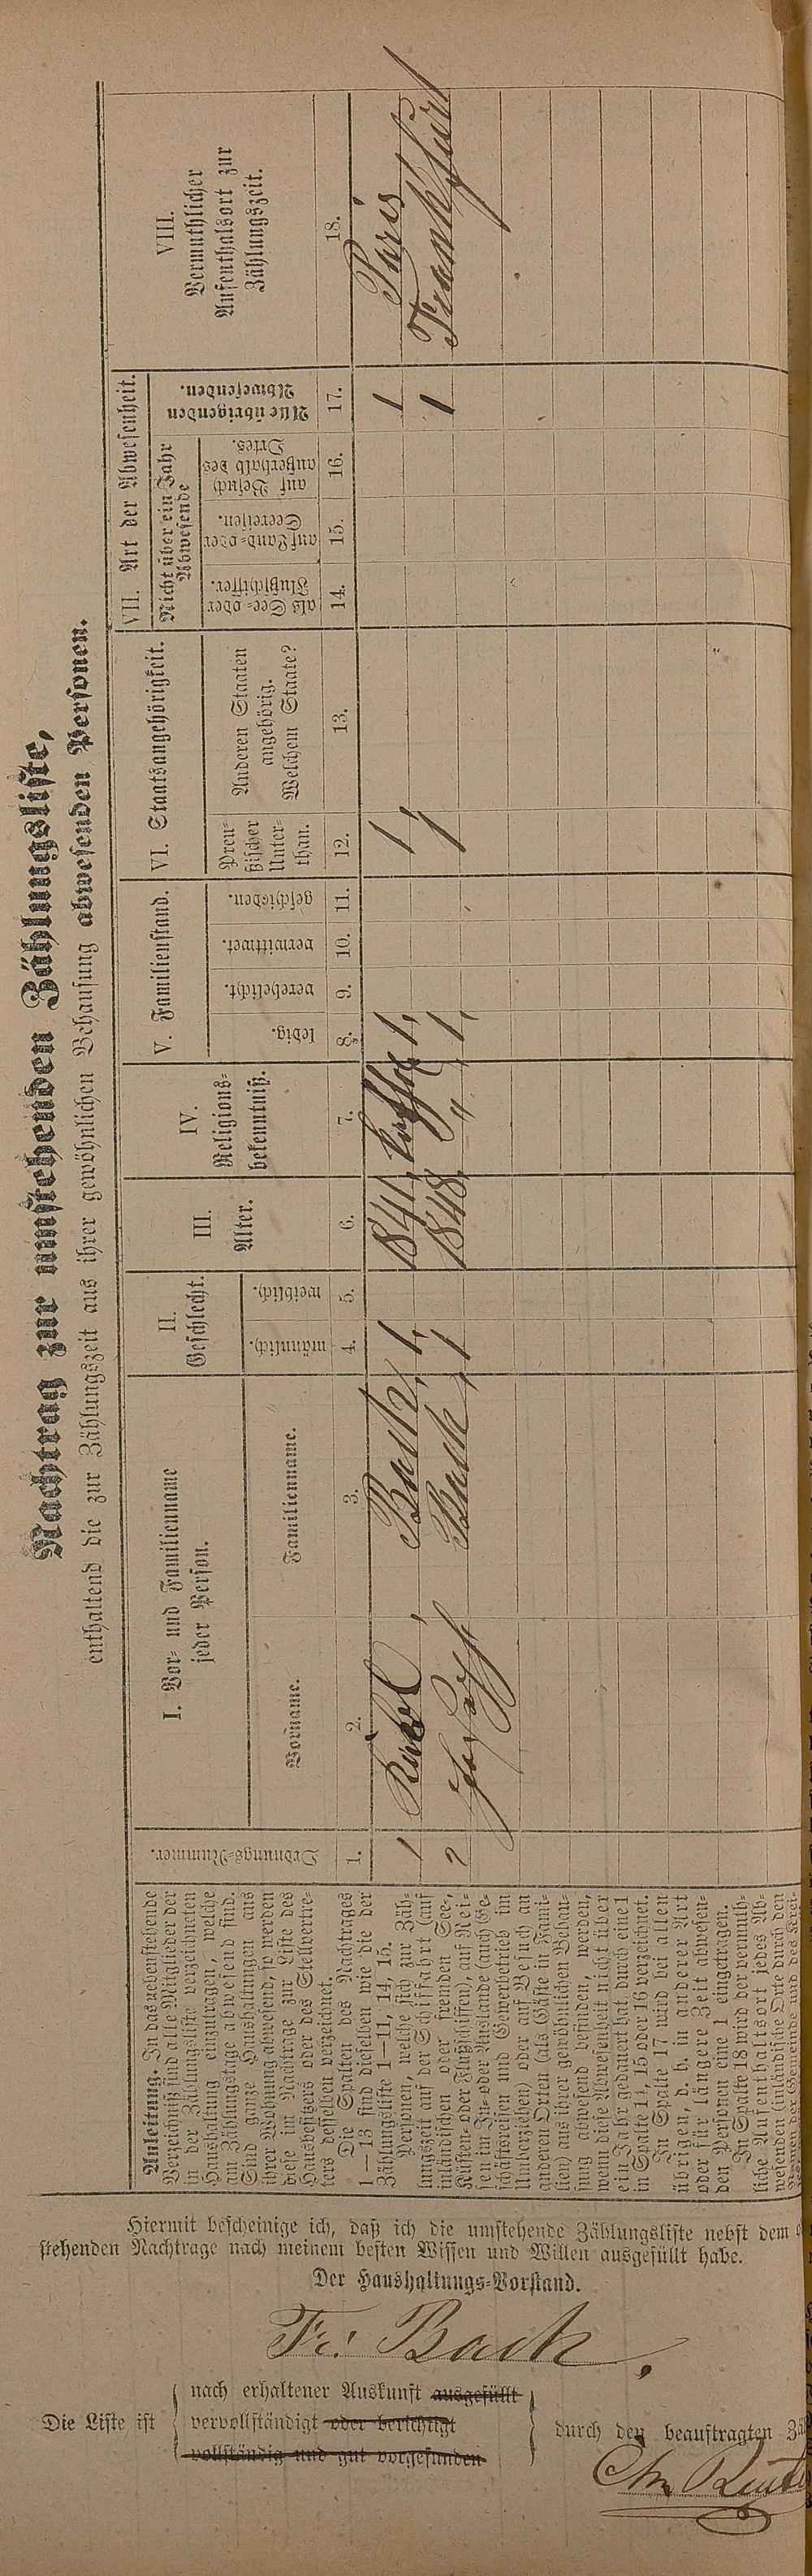 Nachtrag zur umstehenden Zählungsliste,
enthaltend die zur Zählungszeit aus ihrer gewöhnlichen Behausung abwesenden Personen.
Anleitung. In das nebenstehende
Verzeichniß sind alle Mitglieder der
in der Zählungsliste verzeichneten
Haushaltung einzutragen, welche
am Zählungstage abwesend sind.
Sind ganze Haushaltungen aus
ihrer Wohnung abwesend, so werden
diese im Nachtrage zur Liste des
Hausbesitzers oder des Stellvertre-
ters desselben verzeichnet.
Die Spalten des Nachtrages
1—13 sind dieselben wie die der
Zählungsliste 1—11, 14, 15.
Personen, welche sich zur Zäh-
lungszeit auf der Schifffahrt (auf
inländischen oder fremden See-,
Küsten- oder Flußschiffen), auf Rei-
sen im In- oder Auslande (auch Ge-
schäftsreisen und Gewerbetrieb im
Umherziehen) oder auf Besuch an
anderen Orten (als Gäste in Fami-
lien) aus ihrer gewöhnlichen Behau-
sung abwesend befinden, werden,
wenn diese Abwesenheit nicht über
ein Jahr gedauert hat durch eine 1
in Spalte 14, 15 oder 16 verzeichnet.
In Spalte 17 wird bei allen
übrigen, d. h. in anderer Art
oder für längere Zeit abwesen-
den Personen eine 1 eingetragen.
In Spalte 18 wird der vermuth-
liche Aufenthaltsort jedes Ab-
wesenden (inländische Orte durch den
Namen der Gemeinde und des Krei-
Ordnungs-Nummer.
I. Vor- und Familienname
jeder Person.
Vorname.
Familienname.
II.
Geschlecht.
männlich.
weiblich.
III.
Alter.
IV.
Religions-
bekenntniß.
V. Familienstand.
ledig.
verehelicht.
verwittwet.
geschieden.
VI. Staatsangehörigkeit.
Preu-
ßischer
Unter-
than.
Anderen Staaten
angehörig.
Welchem Staate?
VII. Art der Abwesenheit.
Nicht über ein Jahr
Abwesende
als See- oder
Flußschiffer.
auf Land- oder
Seereisen.
auf Besuch
außerhalb des
Ortes.
Alle übrigen
Abwesenden.
VIII.
Vermuthlicher
Aufenthalsort zur
Zählungszeit.
1. 2. 3. 4. 5. 6. 7. 8. 9. 10. 11. 12. 13. 14. 15. 16. 17. 18.
1 Bach, 1, 1841, kathol 1, 1 1 Paris
2 Joseph Bach, 1 1848, " 1, 1 1 Frankfurt
Hiermit bescheinige ich, daß ich die umstehende Zählungsliste nebst dem
stehenden Nachtrage nach meinem besten Wissen und Willen ausgefüllt habe.
Der Haushaltungs-Vorstand.
Fr: Bach.
nach erhaltener Auskunft ausgefüllt
Die Liste ist vervollständigt oder berichtigt durch den beauftragten Zä
vollständig und gut vorgefunden